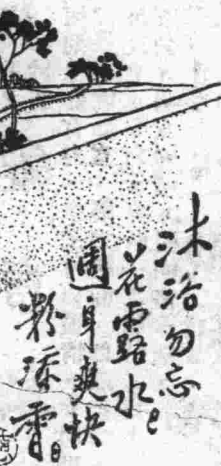 沐浴勿忘
花露水
週身爽快
粉添香